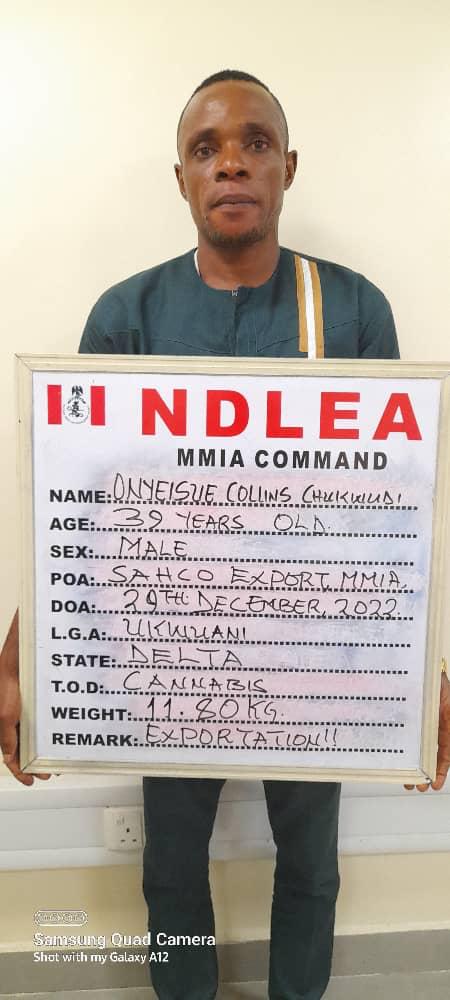 NDLEA
MMIA COMMAND
NAME: ONYEISUE COLLINS CHUKWUDI
AGE: 39 YEARS OLD.
SEX: MALE
POA: SAHCO EXPORT, MMIA.
DOA: 29TH DECEMBER, 2022
L.G.A: UKWUANI
STATE: DELTA
T.O.D: CANNABIS
WEIGHT: 11.80KG.
REMARK: EXPORTATION!!
Samsung Quad Camera
Shot with my Galaxy A12